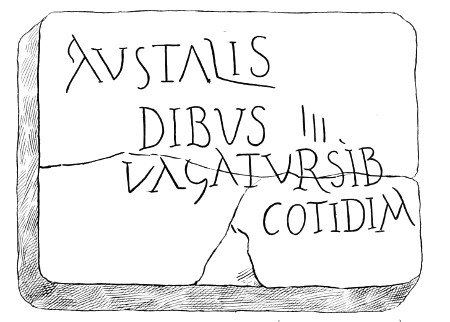 AVSTALIS
DIBVS III
VAGATVRSIB
COTIDIM